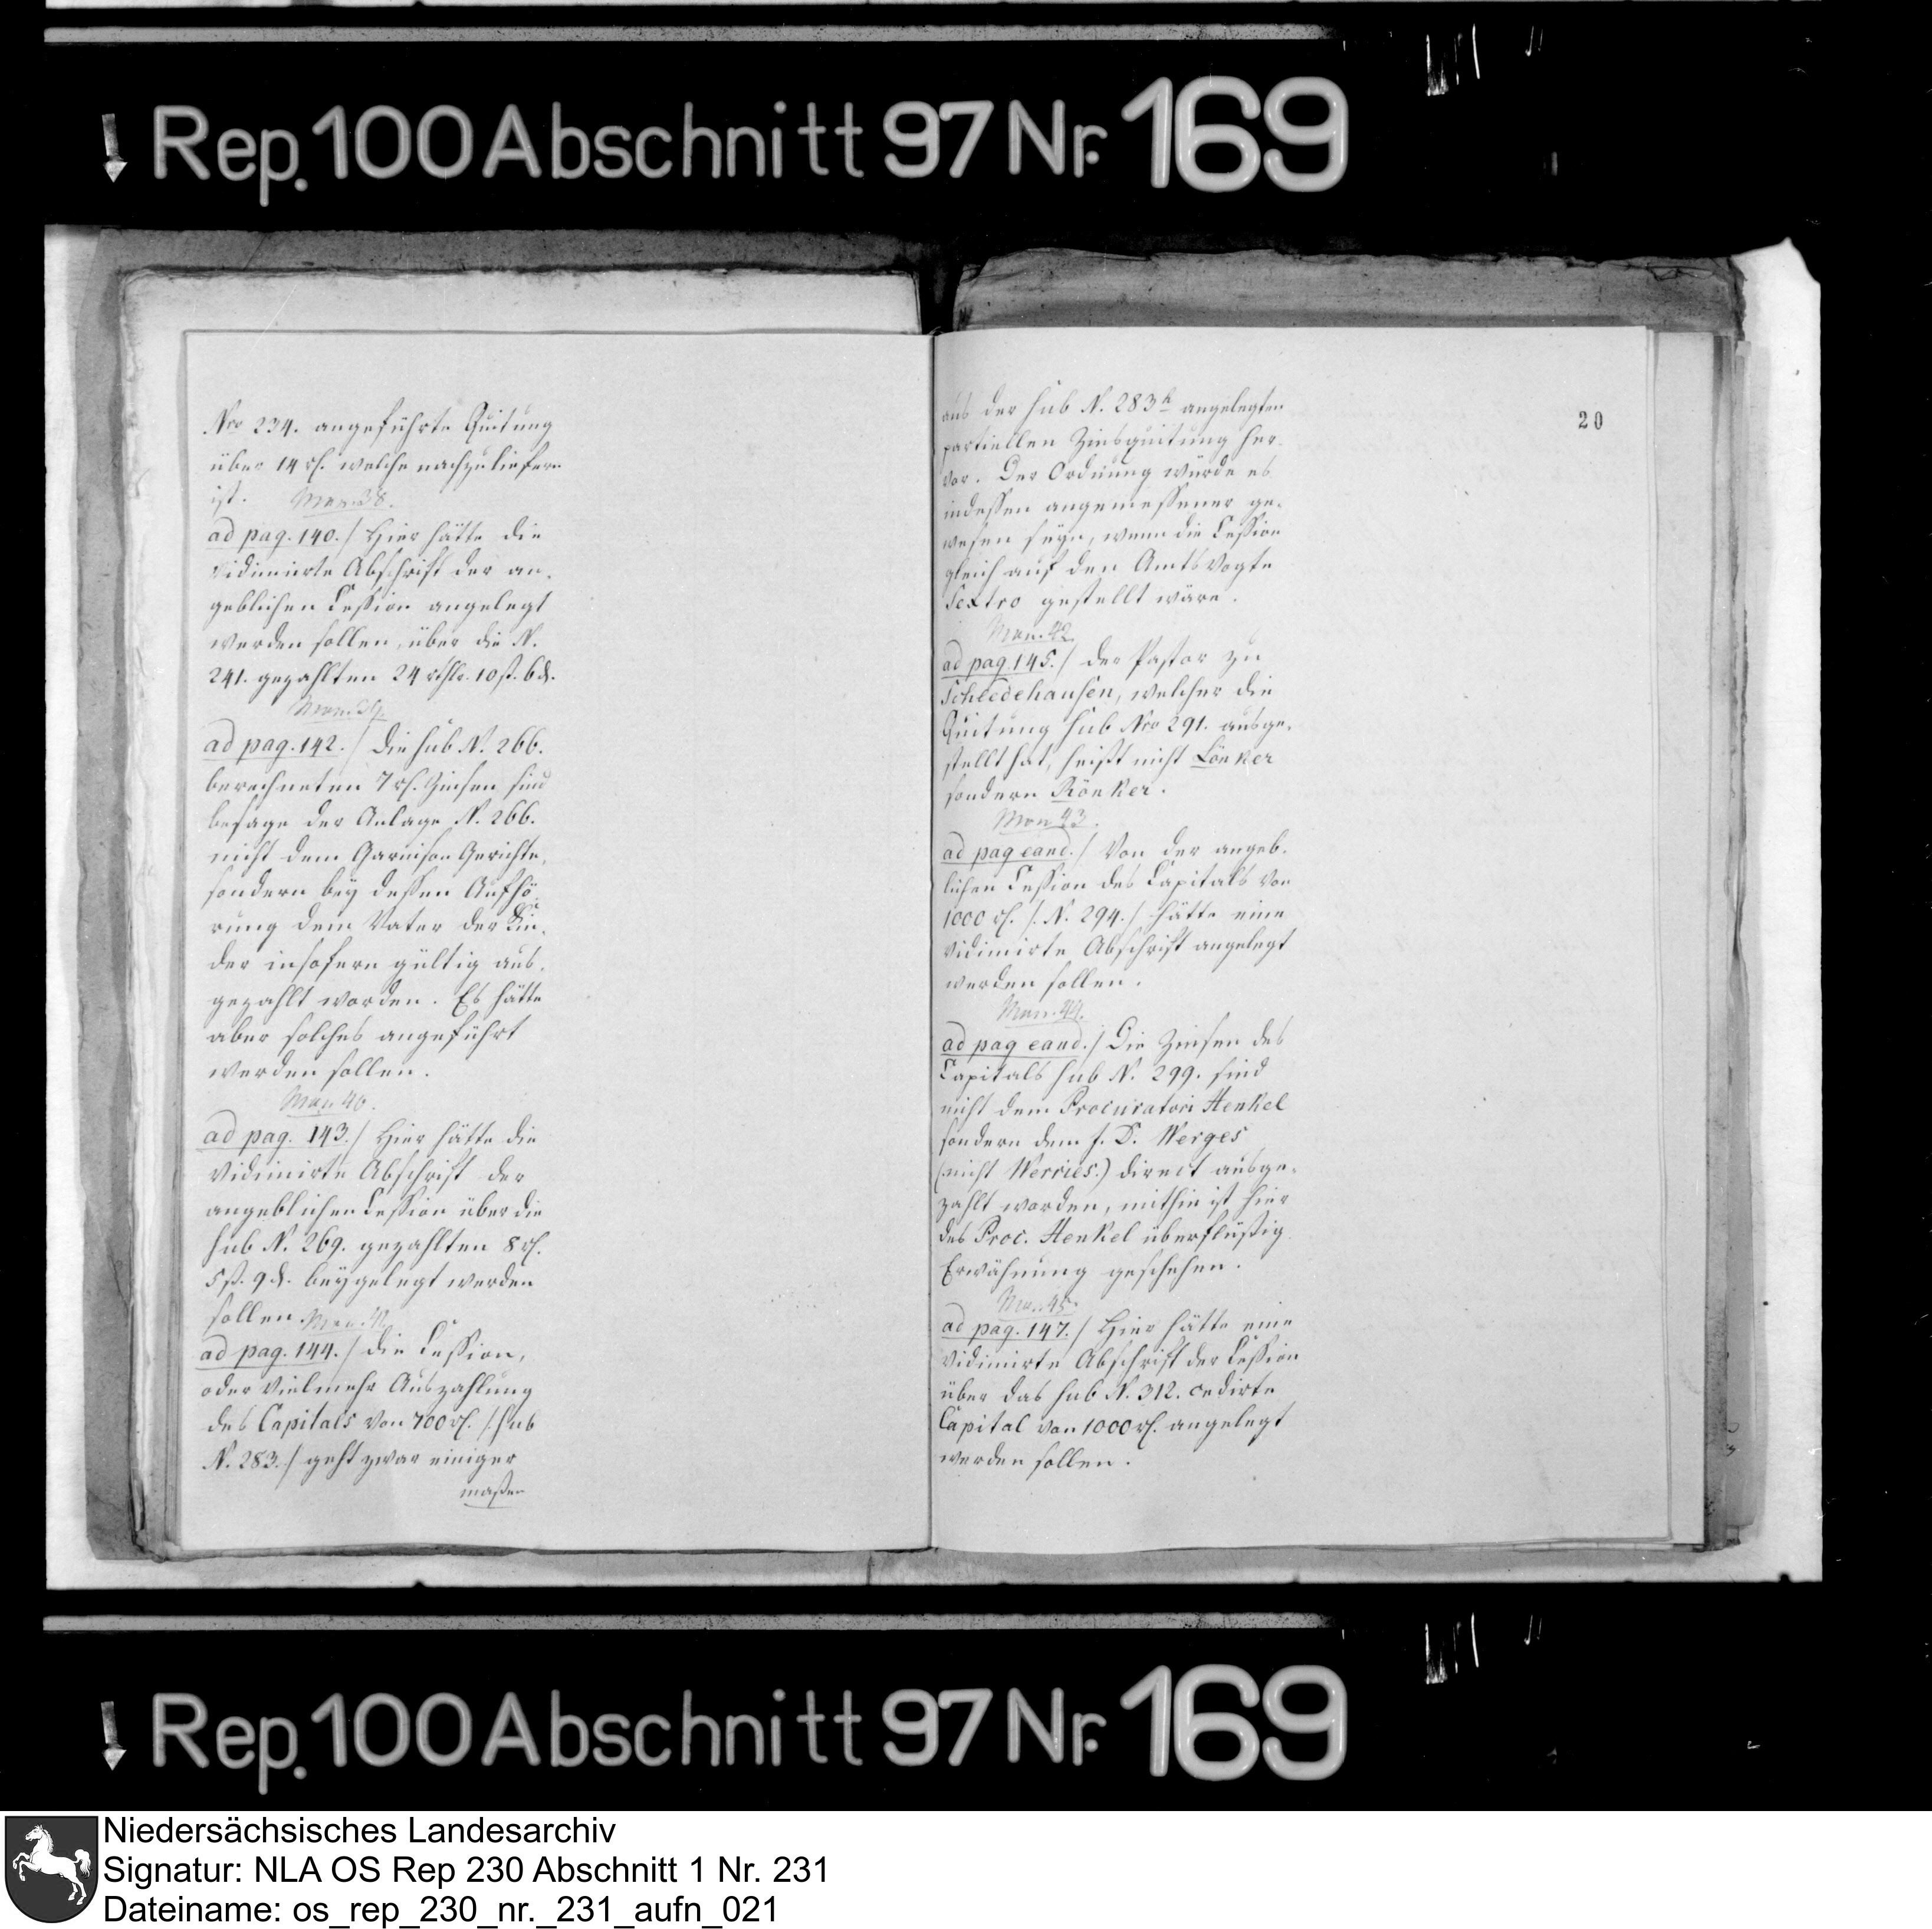 Rep. 100 Abschnitt 97 Nr. 169
Nro 234. angeführte Quitung
über 14 rt. welche nachzuliefern
ist.
Mon. 38.
ad pag. 140./ Hier hätte die
vidimirte Abschrift der an-
geblichen Cession angelegt
werden sollen, über die N.
241. gezahlten 24 rthlr. 10 ß. 6 d.
Mon. 39.
ad pag. 142./ Die sub N. 266.
berechneten 7 rt. Zinsen sind
besage der Anlage N. 266.
nicht dem Garnison Gerichte,
sondern bey dessen Aufhö-
rung dem Vater der Kin-
der insofern gültig aus-
gezahlt worden. Es hätte
aber solches angeführt
werden sollen.
Mon 40.
ad pag. 143./ Hier hätte die
vidimirte Abschrift der
angeblichen Cession über die
sub N. 269. gezahlten 8 rt.
5 ß. 9 d. beygelegt werden
sollen.
Mon. 41.
ad pag. 144./ die Cession,
oder vielmehr Auszahlung
des Capitals von 700 rt. /: sub
N. 283./ geht zwar einiger
maßen
20
aus der sub N. 283 angelegten
partiellen Zinsquitung her-
vor. Der Ordnung würde es
indessen angemessener ge-
wesen seyn, wenn die Cession
gleich auf den Amtsvogte
Sextro gestellt wäre.
Mon. 42.
ad pag. 145./ der Pastor zu
Scheledehausen, welcher die
Quitung sub Nro 291. ausge-
stellt hat, heißt nicht Lönker
sondern Rönker.
Mon 43.
ad pag eand./ Von der angeb-
lichen Cession des Capitals von
1000 rt. /: N. 294./ hätte eine
vidimirte Abschrift angelegt
werden sollen.
Mon. 44.
ad pag eand./ Die Zinsen des
Capitals sub N. 299. sind
nicht dem Procuratori Henkel
sondern dem J. D. Werges
(nicht Werries.) direct ausge-
zahlt worden, mithin ist hier
des Proc. Henkel überflüßig
Erwähnung geschehen.
Mon. 45.
ad pag. 147./ Hier hätte eine
vidimirte Abschrift der Cession
über das sub N. 312. cedirte
Capital von 1000 rt. angelegt
werden sollen.
Rep. 100 Abschnitt 97 Nr. 169
Niedersächsisches Landesarchiv
Signatur: NLA OS Rep 230 Abschnitt 1 Nr. 231
Dateiname: os_rep_230_nr._231_aufn_021